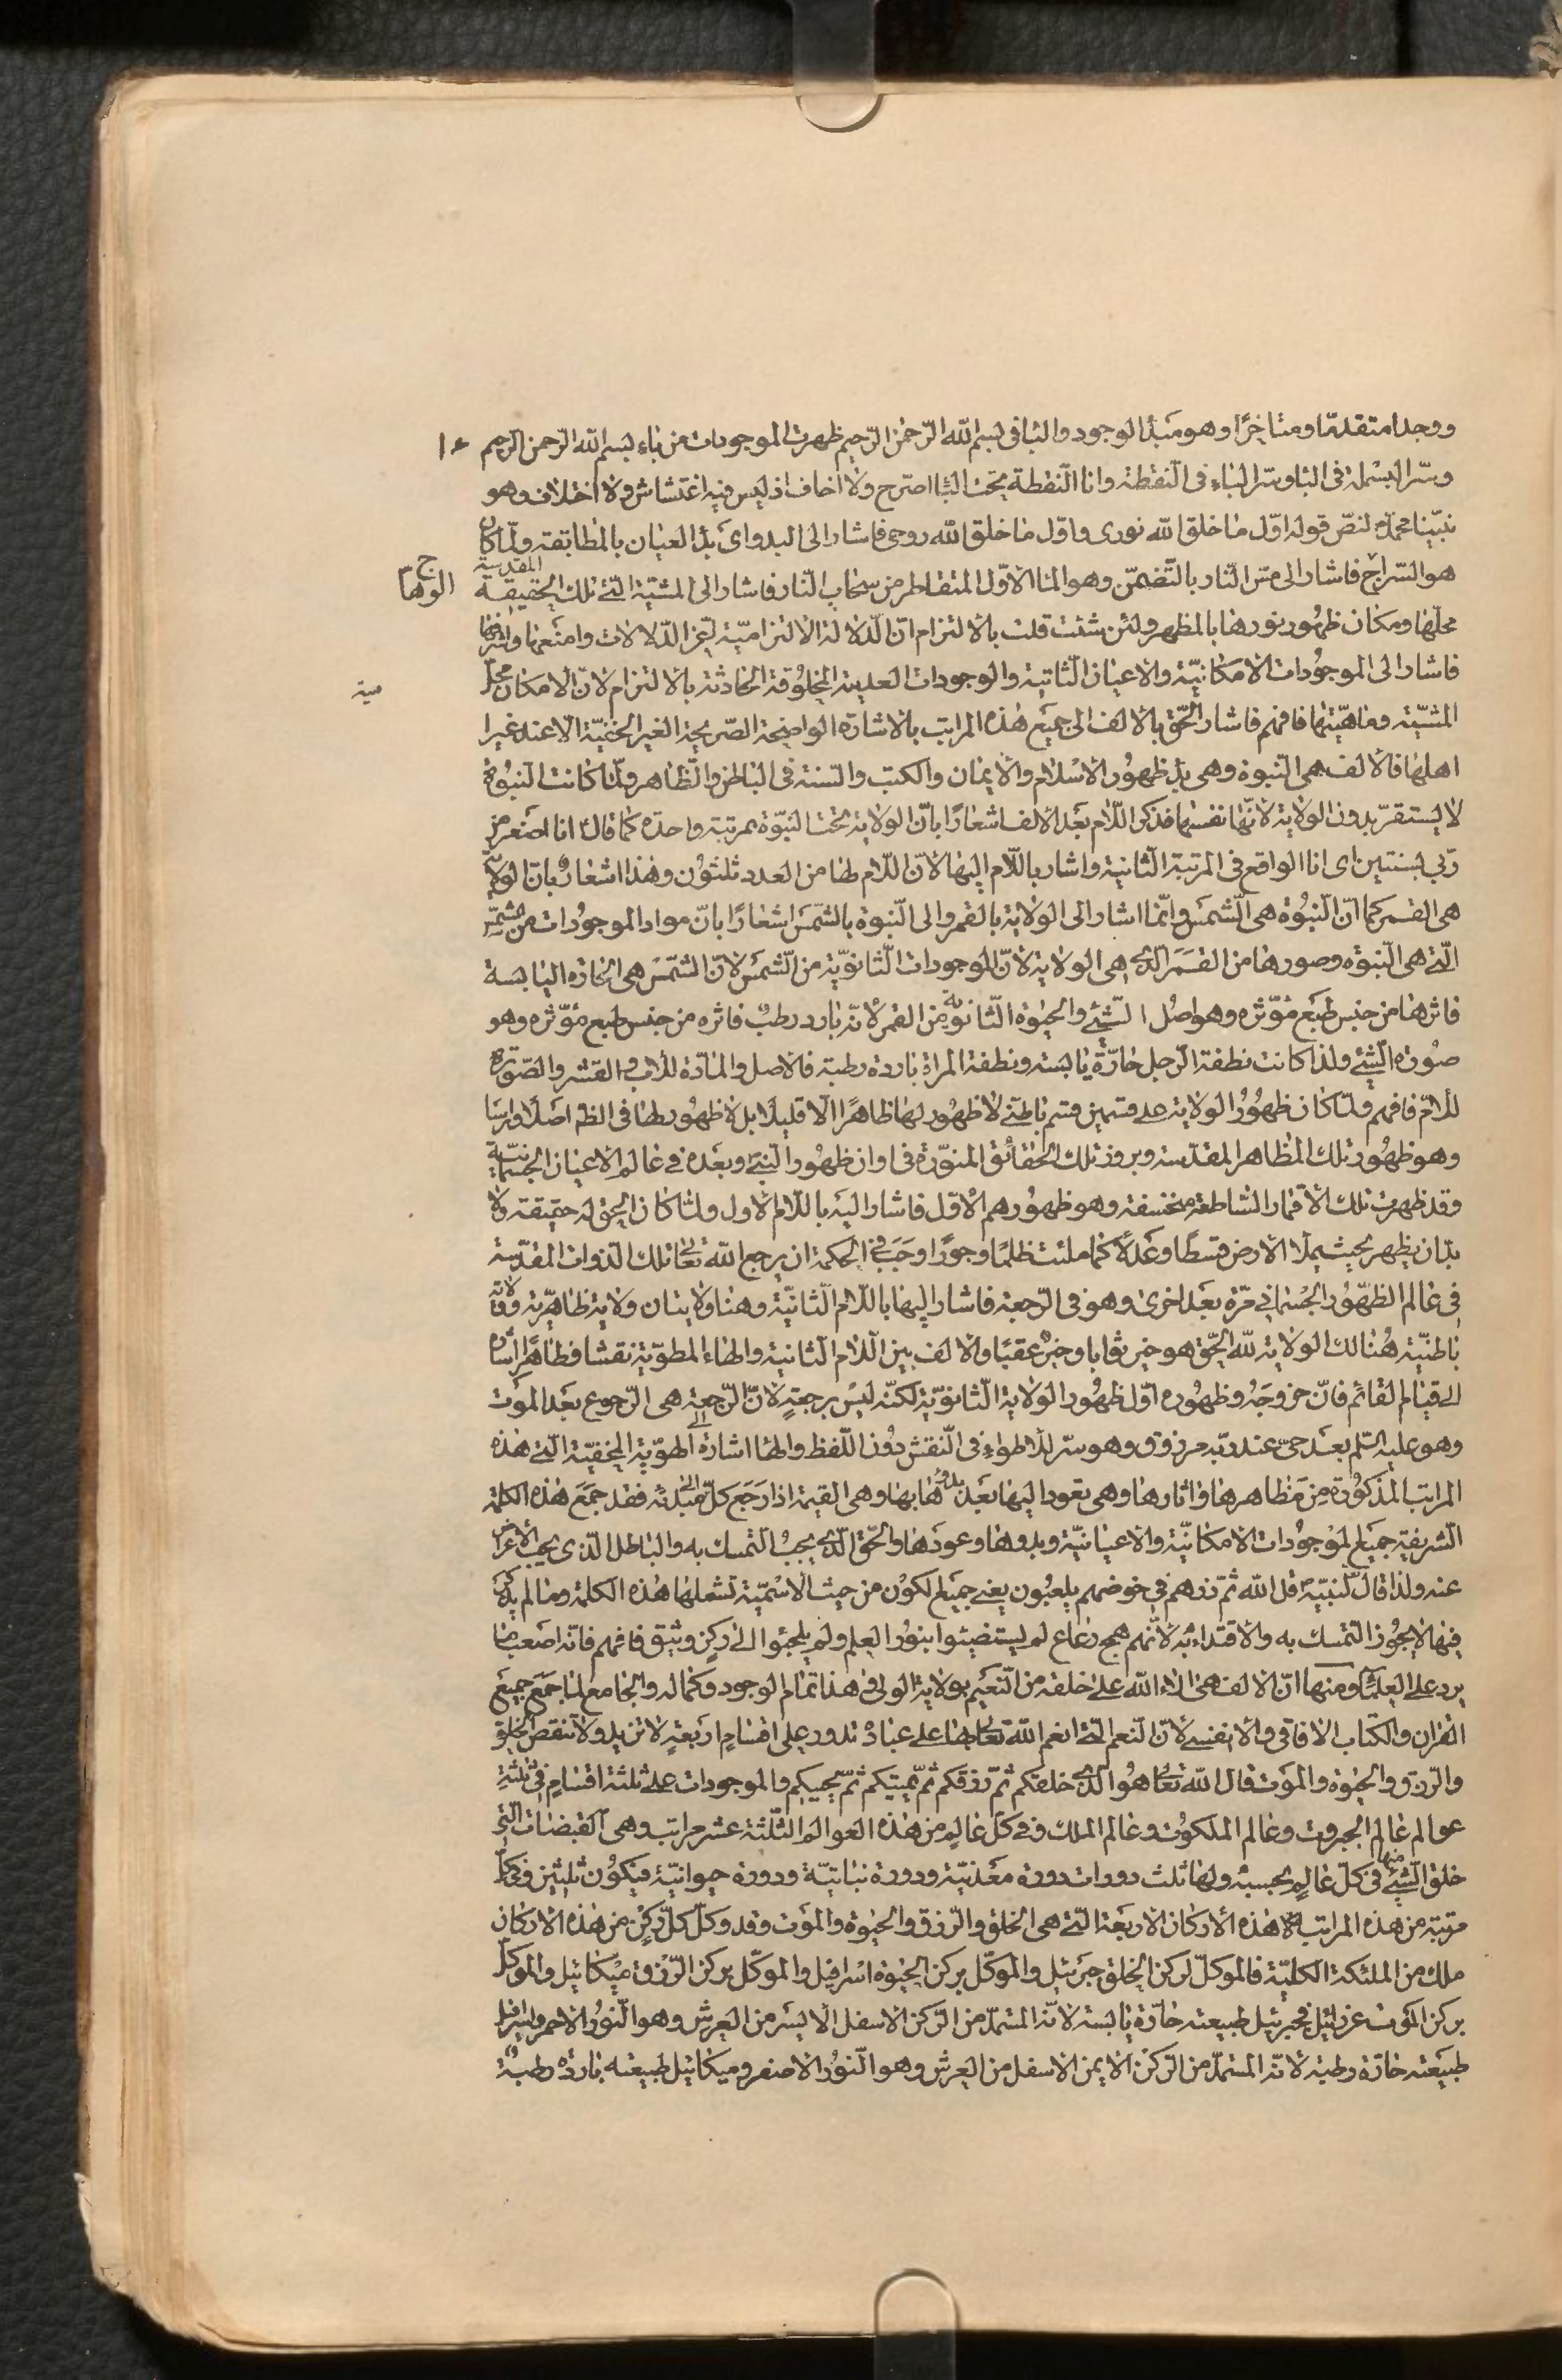 ووجدا متقدمّا ومتاخرًا وهو مبدٔ الوجود والبا فى بسم الله الرّحمٰن الرّحيم ظهرت الموجودات من باء بسم الله الرّحمن الرحيم
وسرّ البسملة فى البا وسرّ الباء فى النّقطة وانا النّقطة تحت البا اصرّح ولا اخاف اذ ليس فيه اغتشاش ولا اختلاف وهو
نبيّنا محمّد لنصّ قوله اوّل ما خلق الله نورى واوّل ما خلق الله روحى فاشار الى البدو اى بدٔ العيان بالمطابقة ولمّا كان
هو السّراج الوهاج فاشار الى مسّ النّار بالتّضمّن وهو الما الاوّل المتقاطر من سحاب النّار فاشار الى المشيّة الّتى تلك الحقيقة المقدسة
محلّها ومكان ظهور نورها بالمظهر ولئن شئت قلت بالالتزام انّ الدّلالة الالتزاميّة لمن اعزّ الدّلالات وامنعها واشرفها
فاشار الى الموجُودات الامكانيّة والاعيان الثّابتة والوجودات العدمية المخلُوقة الحادثة بالالتزام لانّ الامكان محلّ
المشيّة وماهيّتها فافهم فاشار الحّق بالالف الى جميَع هٰذه المراتب بالاشارة الواضحة الصّريحة الغير الخفيّة الا عند غير
اهلها فالالف هى النّبوة وهى بدٔ ظهُور الاسْلام والايمان والكتب والسّنة فى الباطن والظّاهر ولمّا كانت النبُوة
لا يستقرّ بدون الولاية لانّها نفسها فذكر اللّام بعَد الالف اشعارًا بانّ الولاية تحت النبّوة بمرتبة واحدة كما قال انا اصغر من
ربّي بسنتين اى انا الواقع فى المرتبة الثّانية واشار باللّام اليها لانّ اللّام لها من العدد ثلثوُن وهٰذا اشعارٌ بانّ الولاية
هى القمر كما انّ النّبُوّة هى الشّمسَ وانّما اشار الى الولاية بالقمر والى النّبوة بالشّمَس اشعارًا بانّ مواد الموجُودات من الشمس
الّتى هى النّبوّة وصورها من القمَر الّذى هى الولاية لانّ الموجودات الثّانويّة من الشّمسَ لانّ الشّمسَ هى الحارّة اليابسة
فاثرها من جنس طبَع مُؤثّره وهو اصلُ الشّئ والحيٰوة الثّانوية من القمر لانّه بارد رطبٌ فاثره من جنس طبع مؤثّره وهو
صُورة الشّئ ولذا كانت نطفة الرّجل حارّة يابسة ونطفة المراة باردة رطبة فالاصل والمادّة للاب والقشر والصّورة
للامّ فافهم ولمّا كان ظهُورُ الولاية على قسمين قسم باطنّى لا ظهُور لها ظاهرًا الّا قليلًا بل لا ظهُور لها فى الظه اصَلًا وراسَا
وهو ظهُور تلك المظاهر المقدّسة وبروز تلك الحقائق المنوّرة فى اوان ظهُور النبّى وبعَده فى عالم الاعيان الجسمانيّة
وقد ظهرت تلك الاقمار السّاطعة منخسفة وهو ظهُورهم الْاوّل فاشار اليَه باللّام الاول ولمّا كان الحق له حقيقة ولا
بدّ ان يظهر بحيث يملا الارض قسطًا وعَدلًا كما ملئت ظلمًا وجورًا وجَبَ فى الحكمة ان يرجع اللّه تعٰالى تلك الذّوات المقدّسة
فى عالم الظّهُور الجسْمانى مرّة بعَد اخرى وهو فى الرّجعة فاشار اليها باللّام الثّانيّة وهنا ولايتان ولاية ظاهريّة وولاية
باطنيّة هُنالك الولاية للّه الحّق هو خير ثوابا وخيرٌ عقبًا والالف بين اللّام الثانية والهاء المطويّة نقشا فظاهرًا اشارة
الى قيام القائم فانّ خروجَهُ وظهُوره اوّل ظهُور الولاية الثّانويّة لكنّه ليسَ برجعةٍ لانّ الرّجعة هى الرّجوع بعَد الموَت
وهو عليه السّلم بعَد حىّ عند ربّه مرزوق وهو سرّ للاطواءِ فى النّقش دُون اللّفظ والها اشارة الى الهويّة المخفيّة الّتى هذه
المراتب المذكوُرة مِن مَظاهرها واثارها وهى تعود اليها بعَد بدوها بها وهى القيمة اذا رَجَع كلّ الى مبدئه فقد جمَعَ هٰذه الكلمة
الشريفة جميَع المَوْجُودات الامكانيّة والاعيانيّة وبدوها وعودَها والحّق الّذى يجبُ التمسك به والباطل الذى يجب الاعراض
عنه ولذا قال لنبيّه قل اللّه ثمّ ذرهم فى خوضهم يلعبُون يعنى جميَع الكوْن من حيث الاسْميّة تشملها هٰذه الكلمة وما لم يذكر
فيها لا يجُوز التمسك به والاقتداء به لانّهم همج رعاع لم يستضيئوا بنوُر العِلم ولَم يلجئوا الى ركنٍ وثيق فافهم فانّه اصَعب ما
يرد على العلمَاء ومنها انّ الالف هى الاء اللّه على خلقه من النّعَيم بولاية الولى فى هذا تمام الوجود وكماله والجامع لما جمَعَ جميعَ
القران والكتاب الافاقى والانفسى لانّ النّعم الّتى انعم اللّه تعٰالى بها على عبادهْ تدور على اقسامٍ اربَعةٍ لا تزيد ولا تنقص الخلق
والرّزق والحيٰوة والموَت قال اللّه تعٰالى هُوا الّذى خلقكم ثمّ رزقكم ثمّ يُميتكم ثمّ يحييكم والموجودات على ثلثة اقسامٍ فى ثلثةِ
عوالم عالم الجبروت وعالم الملكوُت وعالم الملك وفى كلّ عالمٍ من هٰذه العوالم الثّلثة عشر مراتب وهى القبضات الّتى
خلق الشّئ منها فى كلّ عالمٍ بحسبهٖ ولها ثلث دورات دورة معَدنيّة ودورة نباتيّة ودورة حيوانيّة فيكوُن ثلثين وفى كلّ
مرتبة من هذه المراتب هٰذه الأركان الاربعَة الّتى هى الخلق والرّزق والحيٰوة والموَت وقد وكّل كلّ ركنٍ من هٰذه الاركان
ملك من الملئكة الكليّة فالموكلّ لركن الخلق جبَرئيل والموكّل بركن الحيٰوة اسْرافيل والموكّل بركن الرّزْق ميكائيل والموكلّ
بركن الموَت عزرائيل فجبرئيل طبيعته حارّة يابسة لانّه المستمدّ من الرّكن الاسفل الايسَر من العَرش وهو النّوُر الاحمر واسرافيل
طبيَعته حارّة رطبة لانّه المستمدّ من الرّكن الايمن الاسفل من العَرش وهو النّوُر الاصفر وميكائيل طبيعته باردة رطبةٌ